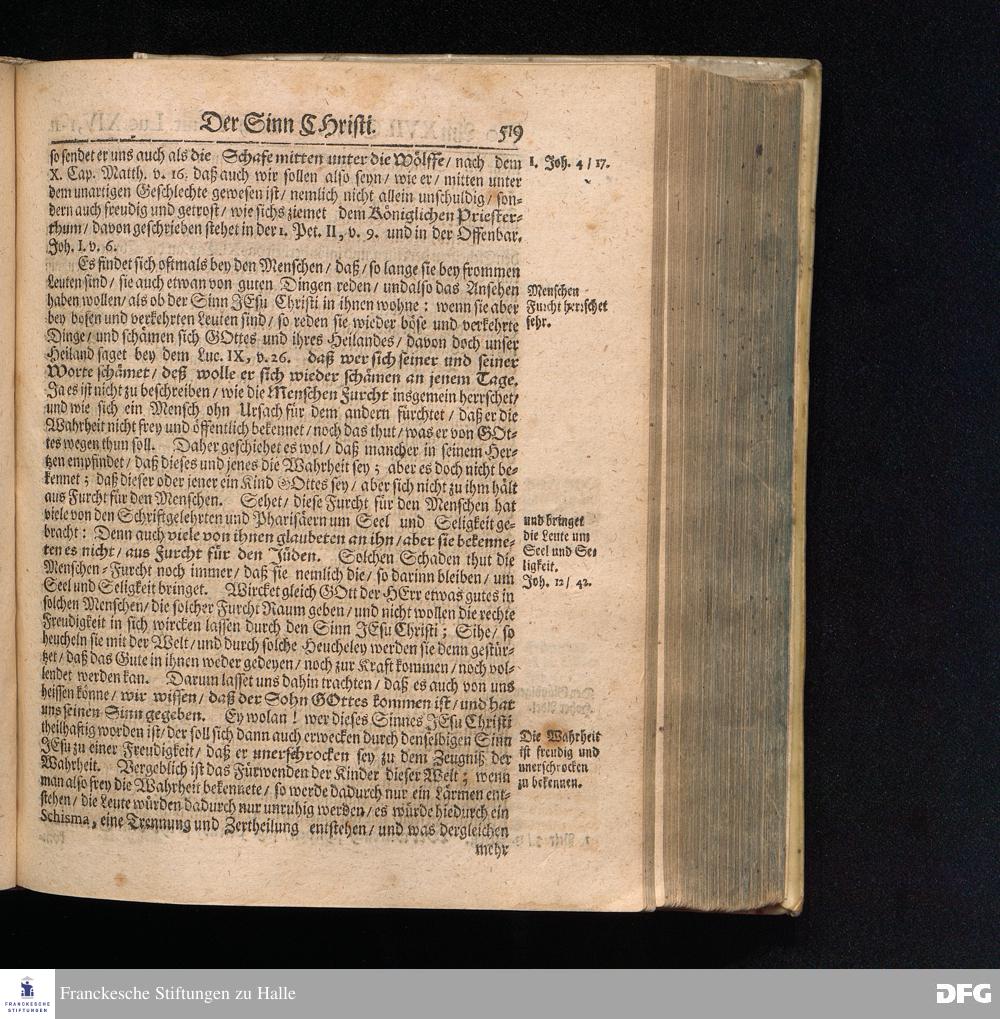 Der Sinn CHristi.
519
so sendet er uns auch als die Schafe mitten unter die Wölffe/ nach dem
X. Cap. Matth. v. 16. daß auch wir sollen also seyn/ wie er/ mitten unter
dem unartigen Geschlechte gewesen ist/ nemlich nicht allein unschuldig/ son-
dern auch freudig und getrost/ wie sichs ziemet dem Königlichen Priester-
thum/ davon geschrieben stehet in der 1. Pet. II, v. 9. und in der Offenbar.
Joh. I. v. 6.
1. Joh. 4/ 17.
Es findet sich oftmals bey den Menschen/ daß/ so lange sie bey frommen
Leuten sind/ sie auch etwan von guten Dingen reden/ und also das Ansehen
haben wollen/ als ob der Sinn JEsu Christi in ihnen wohne: wenn sie aber
bey bösen und verkehrten Leuten sind/ so reden sie wieder böse und verkehrte
Dinge/ und schämen sich GOttes und ihres Heilandes/ davon doch unser
Heiland saget bey dem Luc. IX, v. 26. daß wer sich seiner und seiner
Worte schämet/ deß wolle er sich wieder schämen an jenem Tage.
Ja es ist nicht zu beschreiben/ wie die Menschen Furcht insgemein herrschet/
und wie sich ein Mensch ohn Ursach für dem andern fürchtet/ daß er die
Wahrheit nicht frey und öffentlich bekennet/ noch das thut/ was er von GOt-
tes wegen thun soll. Daher geschiehet es wol/ daß mancher in seinem Her-
tzen empfindet/ daß dieses und jenes die Wahrheit sey; aber es doch nicht be-
kennet; daß dieser oder jener ein Kind GOttes sey/ aber sich nicht zu ihm hält
aus Furcht für den Menschen. Sehet/ diese Furcht für den Menschen hat
viele von den Schriftgelehrten und Pharisäern um Seel und Seligkeit ge-
bracht: Denn auch viele von ihnen glaubeten an ihn/ aber sie bekenne-
ten es nicht/ aus Furcht für den Jüden. Solchen Schaden thut die
Menschen-Furcht noch immer/ daß sie nemlich die/ so darinn bleiben/ um
Seel und Seligkeit bringet. Wircket gleich GOtt der HErr etwas gutes in
solchen Menschen/ die solcher Furcht Raum geben/ und nicht wollen die rechte
Freudigkeit in sich wircken lassen durch den Sinn JEsu Christi; Sihe/ so
heucheln sie mit der Welt/ und durch solche Heucheley werden sie denn gestür-
tzet/ daß das Gute in ihnen weder gedeyen/ noch zur Kraft kommen/ noch vol-
lendet werden kan. Darum lasset uns dahin trachten/ daß es auch von uns
heissen könne/ wir wissen/ daß der Sohn GOttes kommen ist/ und hat
uns seinen Sinn gegeben. Ey wolan! wer dieses Sinnes JEsu Christi
theilhaftig worden ist/ der soll sich dann auch erwecken durch denselbigen Sinn
JEsu zu einer Freudigkeit/ daß er unerschrocken sey zu dem Zeugniß der
Wahrheit. Vergeblich ist das Fürwenden der Kinder dieser Welt; wenn
man also frey die Wahrheit bekennete/ so werde dadurch nur ein Lärmen ent-
stehen/ die Leute würden dadurch nur unruhig werden/ es würde hiedurch ein
Schisma, eine Trennung und Zertheilung entstehen/ und was dergleichen
mehr
Menschen-
Furcht herrschet
sehr.
und bringet
die Leute um
Seel und Se-
ligkeit.
Joh. 12/ 42.
Die Wahrheit
ist freudig und
unerschrocken
zu bekennen.
FRANCKESCHE
STIFTUNGEN
Franckesche Stiftungen zu Halle
DFG